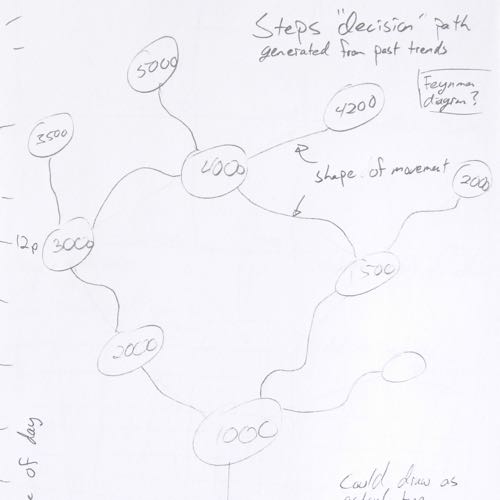 Steps "decision" path
generated from past trends
5000
Feynman
diagram?
4200
3500
4000
shape of movement
2000
12p
3000
1500
2000
1000
of day
Could draw as